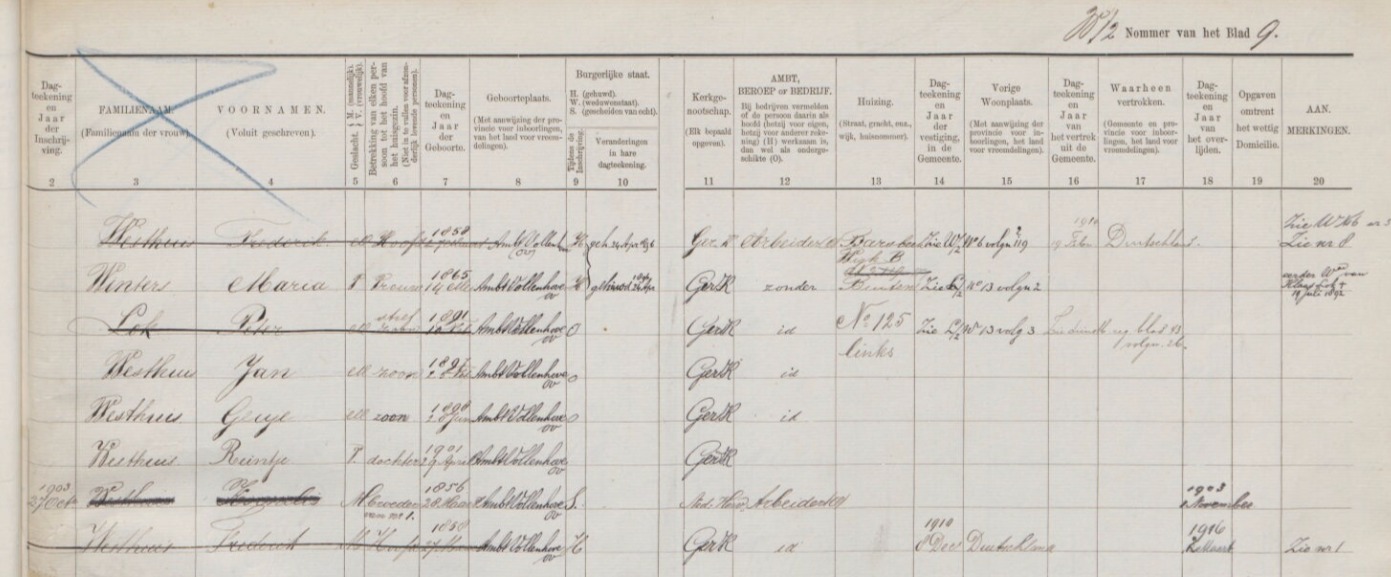 W/2 Nommer van het Blad 9.
Dag-
teekening
en
Jaar
der
Inschrij-
ving.
FAMILIENAAM.
(Familienaam der vrouw)
VOORNAMEN.
(Voluit geschreven).
Geslacht. M. (mannelijk). V. (vrouwelijk).
Betrekking van elken per-
soon tot het hoofd van
het huisgezin.
(Niet in te vullen voor afzon-
derlijk levende personen).
Dag-
teekening
en
Jaar
der
Geboorte.
Geboorteplaats.
(Met aanwijzing der pro-
vincie voor inboorlingen,
van het land voor vreem-
delingen).
Burgerlijke staat.
H. (gehuwd).
W. (weduwenstaat).
S. (gescheiden van echt).
Tijdens de
Inschrijving.
Veranderingen
in hare
dagteekening.
Kerkge-
nootschap.
(Elk bepaald
opgeven).
AMBT,
BEROEP of BEDRIJF.
Bij bedrijven vermelden
of de persoon daarin als
hoofd (hetzij voor eigen,
hetzij voor anderer reke-
ning) (H) werkzaam is,
dan wel als onderge-
schikte (O).
Huizing.
(Straat, gracht, enz.,
wijk, huisnommer).
Dag-
teekening
en
Jaar
der
vestiging,
in de
Gemeente.
Vorige
Woonplaats.
(Met aanwijzing der
provincie voor in-
boorlingen, het land
voor vreemdelingen).
Dag-
teekening
en
Jaar
van het
vertrek
uit de
Gemeente.
Waarheen
vertrokken.
(Gemeente en pro-
vincie voor inboor-
lingen, het land voor
vreemdelingen).
Dag-
teekening
en
Jaar
van
het over-
lijden.
Opgaven
omtrent
het wettig
Domicilie.
AAN.
MERKINGEN.
2 3 4 5 6 7 8 9 10 11 12 13 14 15 16 17 18 19 20
Westhuis Frederik Hoofd 1858 Ambt Vollenh (ov) H Ger. K Arbeider Zie W/2 No 6 volgn 119 1910 Duitschland. Zie nr 8
Wijk B
Winters Maria V Vrouw 1865 Ambt Vollenhove ov H Ger K zonder Zie No 13 volgn 2 eerder We van
Klaas Lok +
19 juli 1892
Lok Peter stief zoon 1891 Ambt Vollenhove ov O Ger K id No 125 Zie L/2 No 13 volg 3 blad 93
volgn. 26.
links
Westhuis Jan zoon Ambt Vollenhove ov O Ger K id
Westhuis zoon Ambt Vollenhove ov O Ger K id
Westhuis Reintje V. dochter 1901 27 April Ambt Vollenhove ov Ger K
1903 27 Oct. Westhuis M broeder van nr 1. 1856 Ambt Vollenhove ov S. Ned. Herv. Arbeider 1903 November
Westhuis Frederik M Hoofd 1858 Ambt Vollenhove ov H Ger K id 1910 8 Dec Duitschland 1916 Zie nr 1